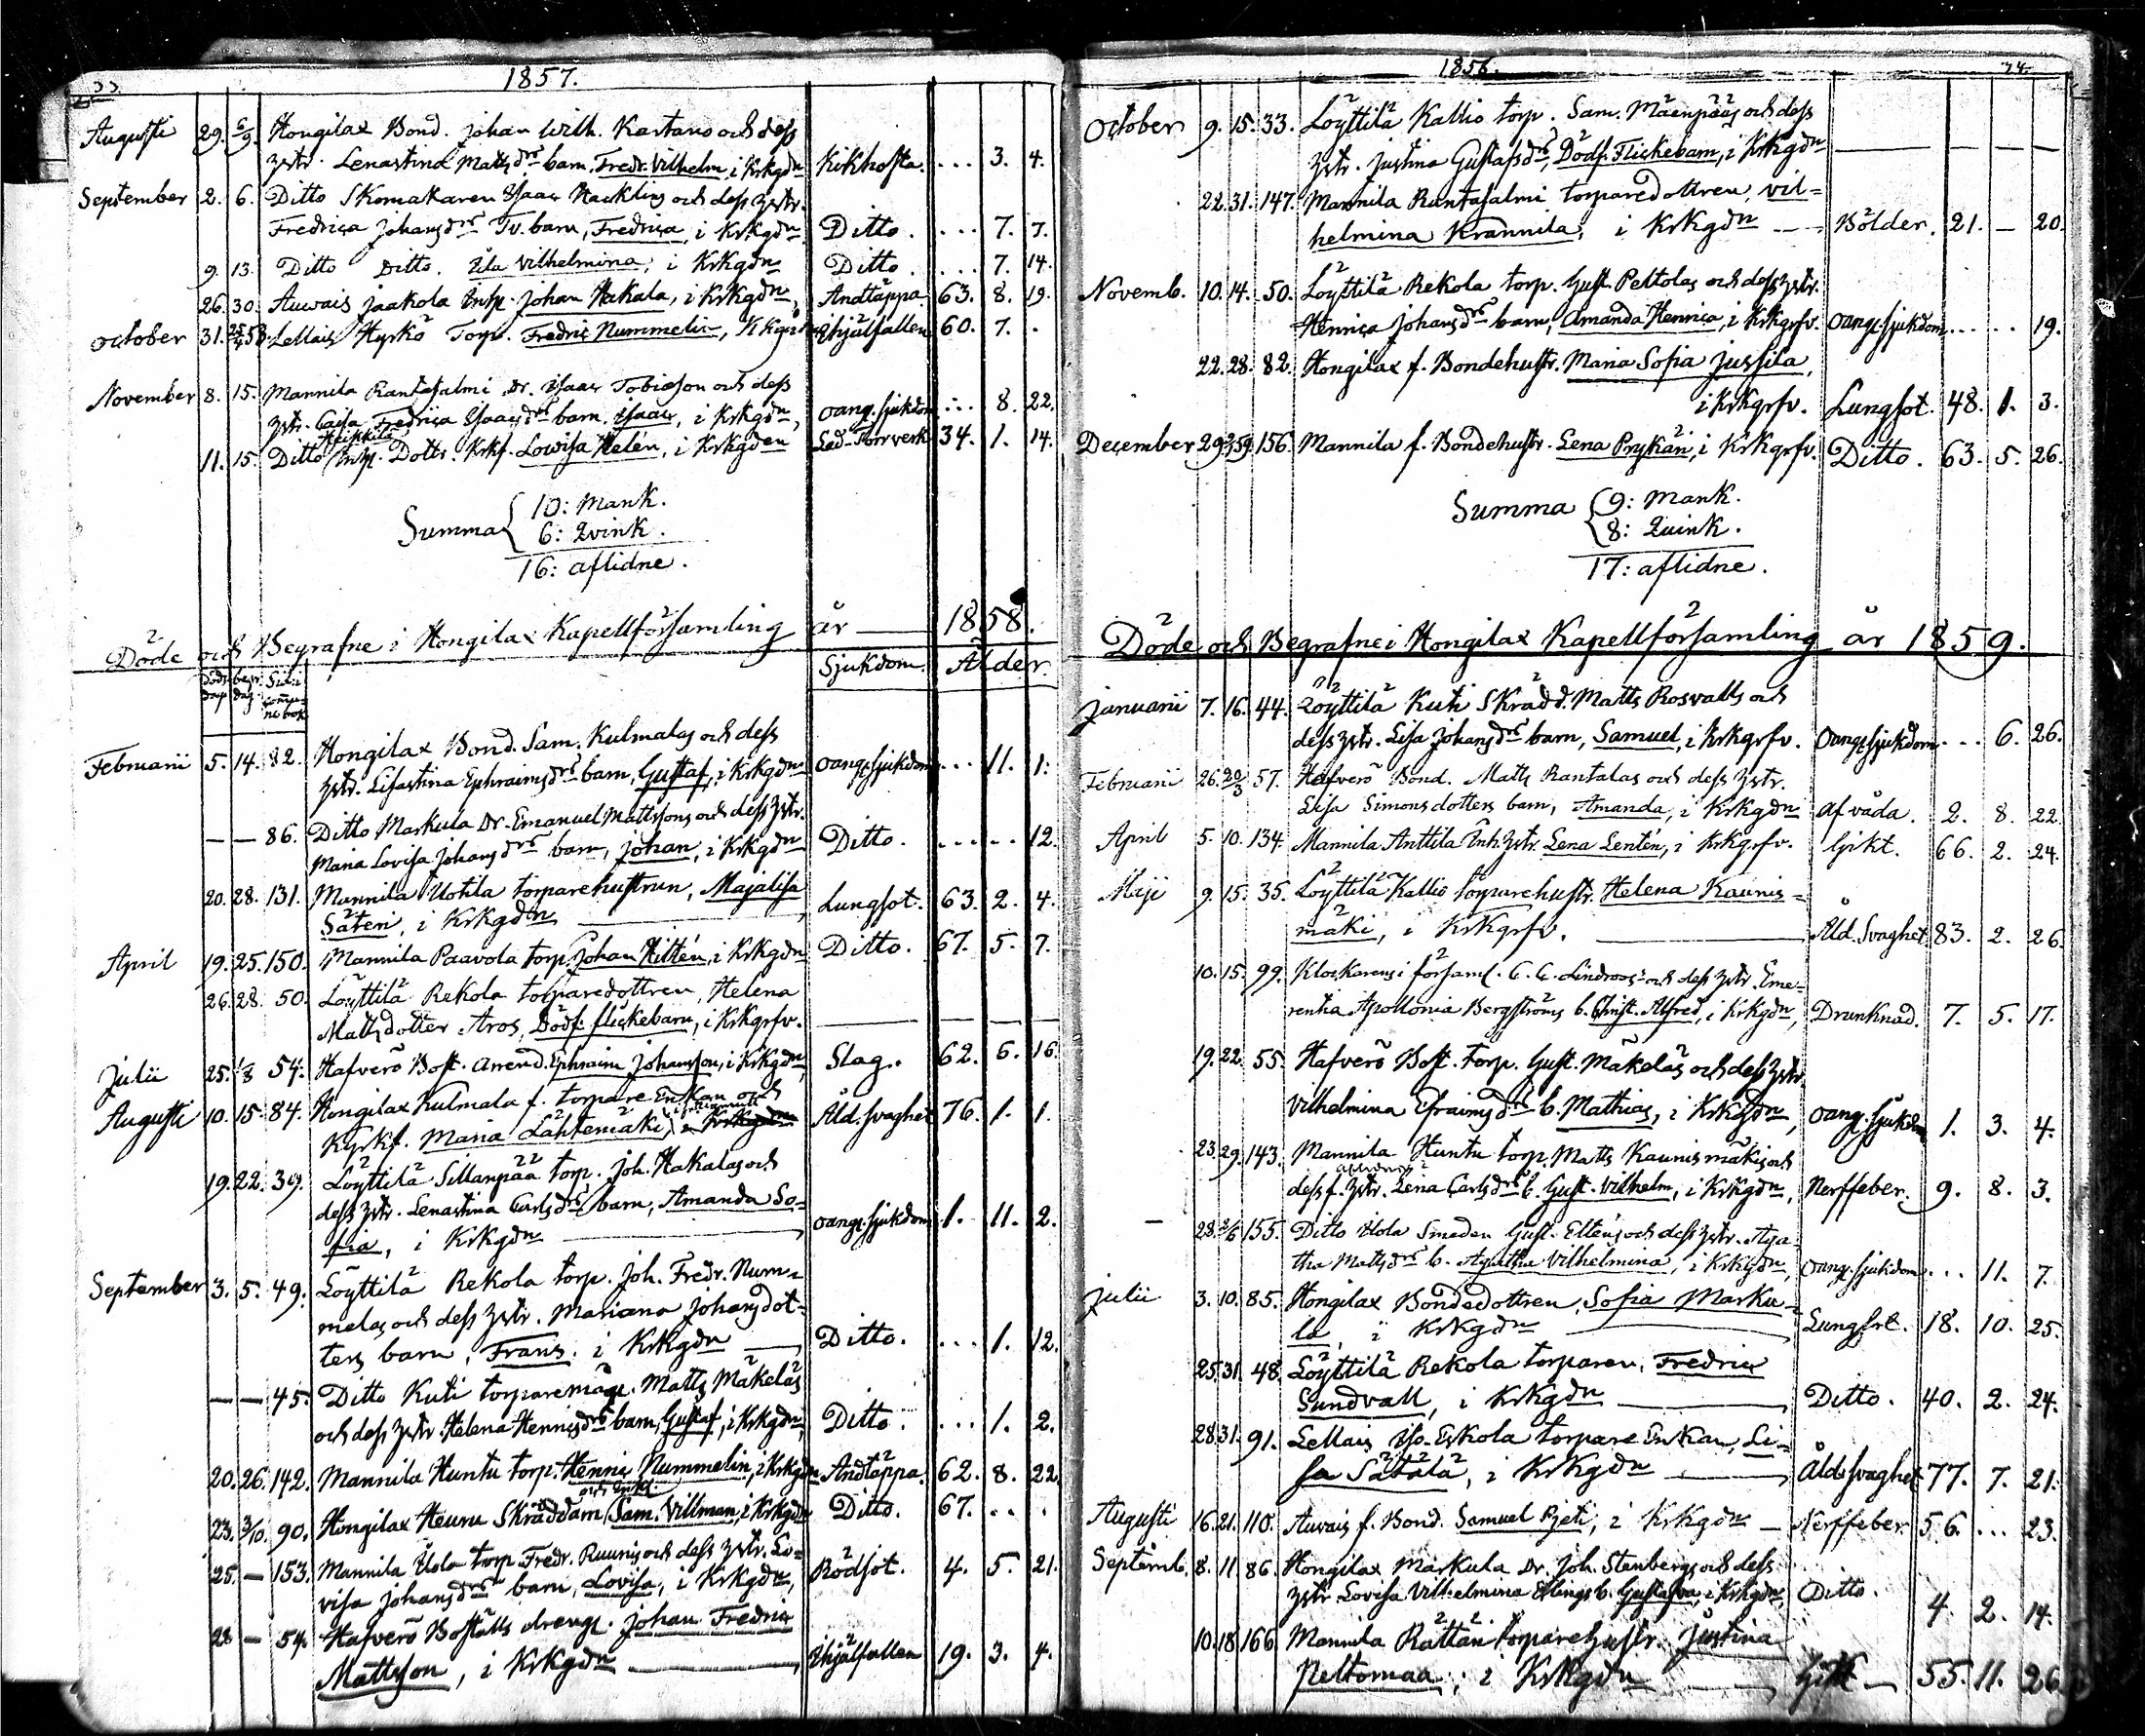 33
1857.
Augusti 29. 6/9. Hongilax Bond. Johan Wilh. Kartano och dess
hstr. Lenastina Mattsdrs barn, Fredr. Vilhelm, i Krkgdn Kikhosta. ... 3. 4.
September 2. 6. Ditto Skomakaren Isaac Hackling och dess hstr.
Fredrica Johansdrs Tv. barn, Fredrica, i Krkgdn Ditto. ... 7. 7.
9. 13. Ditto Ditto. Ula Vilhelmina, i Krkgdn Ditto. ... 7. 14.
26. 30. Auvais Jaakola Inh. Johan Hakala, i Krkgdn, Andtäppa. 63. 8. 19.
October 31. 58. Lellais Hyrkö Torp. Fredric Nummelin, Krkgdn ihjälfallen 60. 7. .
November 8. 15. Mannila Rantasalmi Dr. Isaac Tobiæson och dess
hstr. Cajsa Fredrica Isaacsdrs barn, Isaac, i Krkgdn, oang. sjukdom ... 8. 22.
Heikkilä
11. 15. Ditto Inh. Dottr. Krkf. Lowisa Helén, i Krkgden Led-Torrverk 34. 1. 14.
Summa 10: Mank.
6: Qvink.
16: aflidne.
Döde och Begrafne i Hongilax Kapellförsamling år 1858.
Döds dag begr. dag Sid. i communi bok Sjukdom. Ålder.
Februarii 5. 14. 82. Hongilax Bond. Sam. Kulmalas och dess
hstr. Lisastina Ephraimsdrs barn, Gustaf, i Krkgdn oang. sjukdom ... 11. 1.
— — 86. Ditto Markula Dr. Emanuel Mattssons och dess hstr.
Maria Lovisa Johansdrs barn, Johan, i Krkgdn Ditto. ... ... 12.
20. 28. 131. Mannila Uotila torparehustrun, Majalisa
Säteri, i Krkgdn Lungsot. 63. 2. 4.
April 19. 25. 150. Mannila Paavola torp. Johan Hittén, i Krkgdn Ditto. 67. 5. 7.
26. 28. 50. Löyttilä Rekola torparedottren, Helena
Mattsdotter Aros, Dödf. flickebarn, i Krkgrfv.
Julii 25. 1/8 54. Hafverö Bost. Arrend. Ephraim Johansson, i Krkgdn, Slag. 62. 6. 16.
Augusti 10. 15. 84. Hongilax Kulmala f. torpare Enkan och
Kyrkf. Maria Lähtemäki, i Krkgdn Åld. svaghet 76. 1. 1.
19. 22. 39. Löyttilä Sillanpää torp. Joh. Hakalas och
dess hstr. Lenastina Carlsdrs barn, Amanda So-
fia, i Krkgdn oang. sjukdom 1. 11. 2.
September 3. 5. 49. Löyttilä Rekola torp. Joh. Fredr. Num-
melas och dess hstr. Mariana Johansdot-
ters barn, Frans. i Krkgdn Ditto. ... 1. 12.
— — 45. Ditto Kuti torparemåg. Matts Mäkeläs
och dess hstr. Helena Henricsdrs barn, Gustaf, i Krkgdn, Ditto. ... 1. 2.
20. 26. 142. Mannila Huntu torp. Henric Nummelin, i Krkgdn Andtäppa. 62. 8. 22.
23. 3/10. 90. Hongilax Heuru Skräddarn Sam. Villman, i Krkgdn Ditto. 67. . .
25. — 153. Mannila Uola torp. Fredr. Ruunis och dess hstr. Lo-
visa Johansdrs barn, Lovisa, i Krkgdn, Rödsot. 4. 5. 21.
28 — 54. Hafverö Boställs dreng. Johan Fredric
Mattsson, i Krkgdn Ihjälfallen 19. 3. 4.
1858. 34.
October 9. 15. 33. Löyttilä Kallio torp. Sam. Mäenpääs och dess
hstr. Justina Gustafsdrs, Dödf. Flickebarn, i Krkgdn
22. 31. 147. Mannila Rantasalmi torparedottren, Vil-
helmina Krannila, i Krkgdn Bölder. 21. — 20.
Novemb. 10. 14. 50. Löyttilä Rekola torp. Gust. Peltolas och dess hstr.
Henrica Johansdrs barn, Amanda Henrica, i Krkgrfv. oang. sjukdom ... .. 19.
22. 28. 82. Hongilax f. Bondehustr. Maria Sofia Jussila,
i Krkgrfv. Lungsot. 48. 1. 3.
December 29. 59. 156. Mannila f. Bondehustr. Lena Prykäri, i Krkgrfv. Ditto. 63. 5. 26.
Summa 9: Mank.
8: Quink.
17: aflidne.
Döde och Begrafne i Hongilax Kapellförsamling år 1859.
Januarii 7. 16. 44. Löyttilä Kuti Skrädd. Matts Rosvalls och
dess hstr. Lisa Johansdrs barn, Samuel, i Krkgrfv. Oang. sjukdom ... 6. 26.
Februarii 26. 20/3 57. Hafverö Bond. Matts Rantalas och dess hstr.
Lisa Simonsdotters barn, Amanda, i Krkgdn Af våda. 2. 8. 22.
April 5. 10. 134. Mannila Anttila Inh. hstr. Lena Lentén, i Krkgrfv. Gikt. 66. 2. 24.
Maji 9. 15. 35. Löyttilä Kallio torparehustr. Helena Kaunis-
mäki, i Krkgrfv. Åld. Svaghet 83. 2. 26.
10. 15. 99. Klockarens i församl. C. C. Lindroos' och dess hstr. Eme-
rentia Apollonia Bergströms b. Christ. Alfred, i Krkgdn, Drunknad. 7. 5. 17.
19. 22. 55. Hafverö Bost. Torp. Gust. Mäkeläs och dess hstr.
Vilhelmina Efraimsdrs b. Mathias, i Krkgdn, Oang. sjukdom 1. 3. 4.
23. 29. 143. Mannila Huntu torp. Matts Kaunismäkis och
aflidne
dess f. hstr. Lena Carlsdrs b. Gust. Vilhelm, i Krkgdn, Nerffeber. 9. 8. 3.
28. 2/6 155. Ditto Uola Smeden Gust. Elténs och dess hstr. Aga-
tha Mattsdrs b. Agatha Vilhelmina, i Krkgdn, Oang. sjukdom ... 11. 7.
Julii 3. 10. 85. Hongilax Bondedottren, Sofia Marku-
la, i Krkgdn Lungsot. 18. 10. 25.
25. 31. 48. Löyttilä Rekola torparen, Fredric
Sundvall, i Krkgdn Ditto. 40. 2. 24.
28. 31. 91. Lellais Iso-Eskola torpare Enkan, Li-
sa Sätälä, i Krkgdn Ålds svaghet 77. 7. 21.
Augusti 16. 21. 110. Auvais f. Bond. Samuel Pjeti, i Krkgdn Nerffeber 56. ... 23.
Septemb. 8. 11. 86. Hongilax Markula Dr. Joh. Stenbergs och dess
hstr. Lovisa Vilhelmina Ellings b. Gustafva, i Krkgdn, Ditto. 4. 2. 14.
10. 18. 166. Mannila Rättäri torparehustr. Justina
Peltomaa, i Krkgdn Gikt 55. 11. 26.